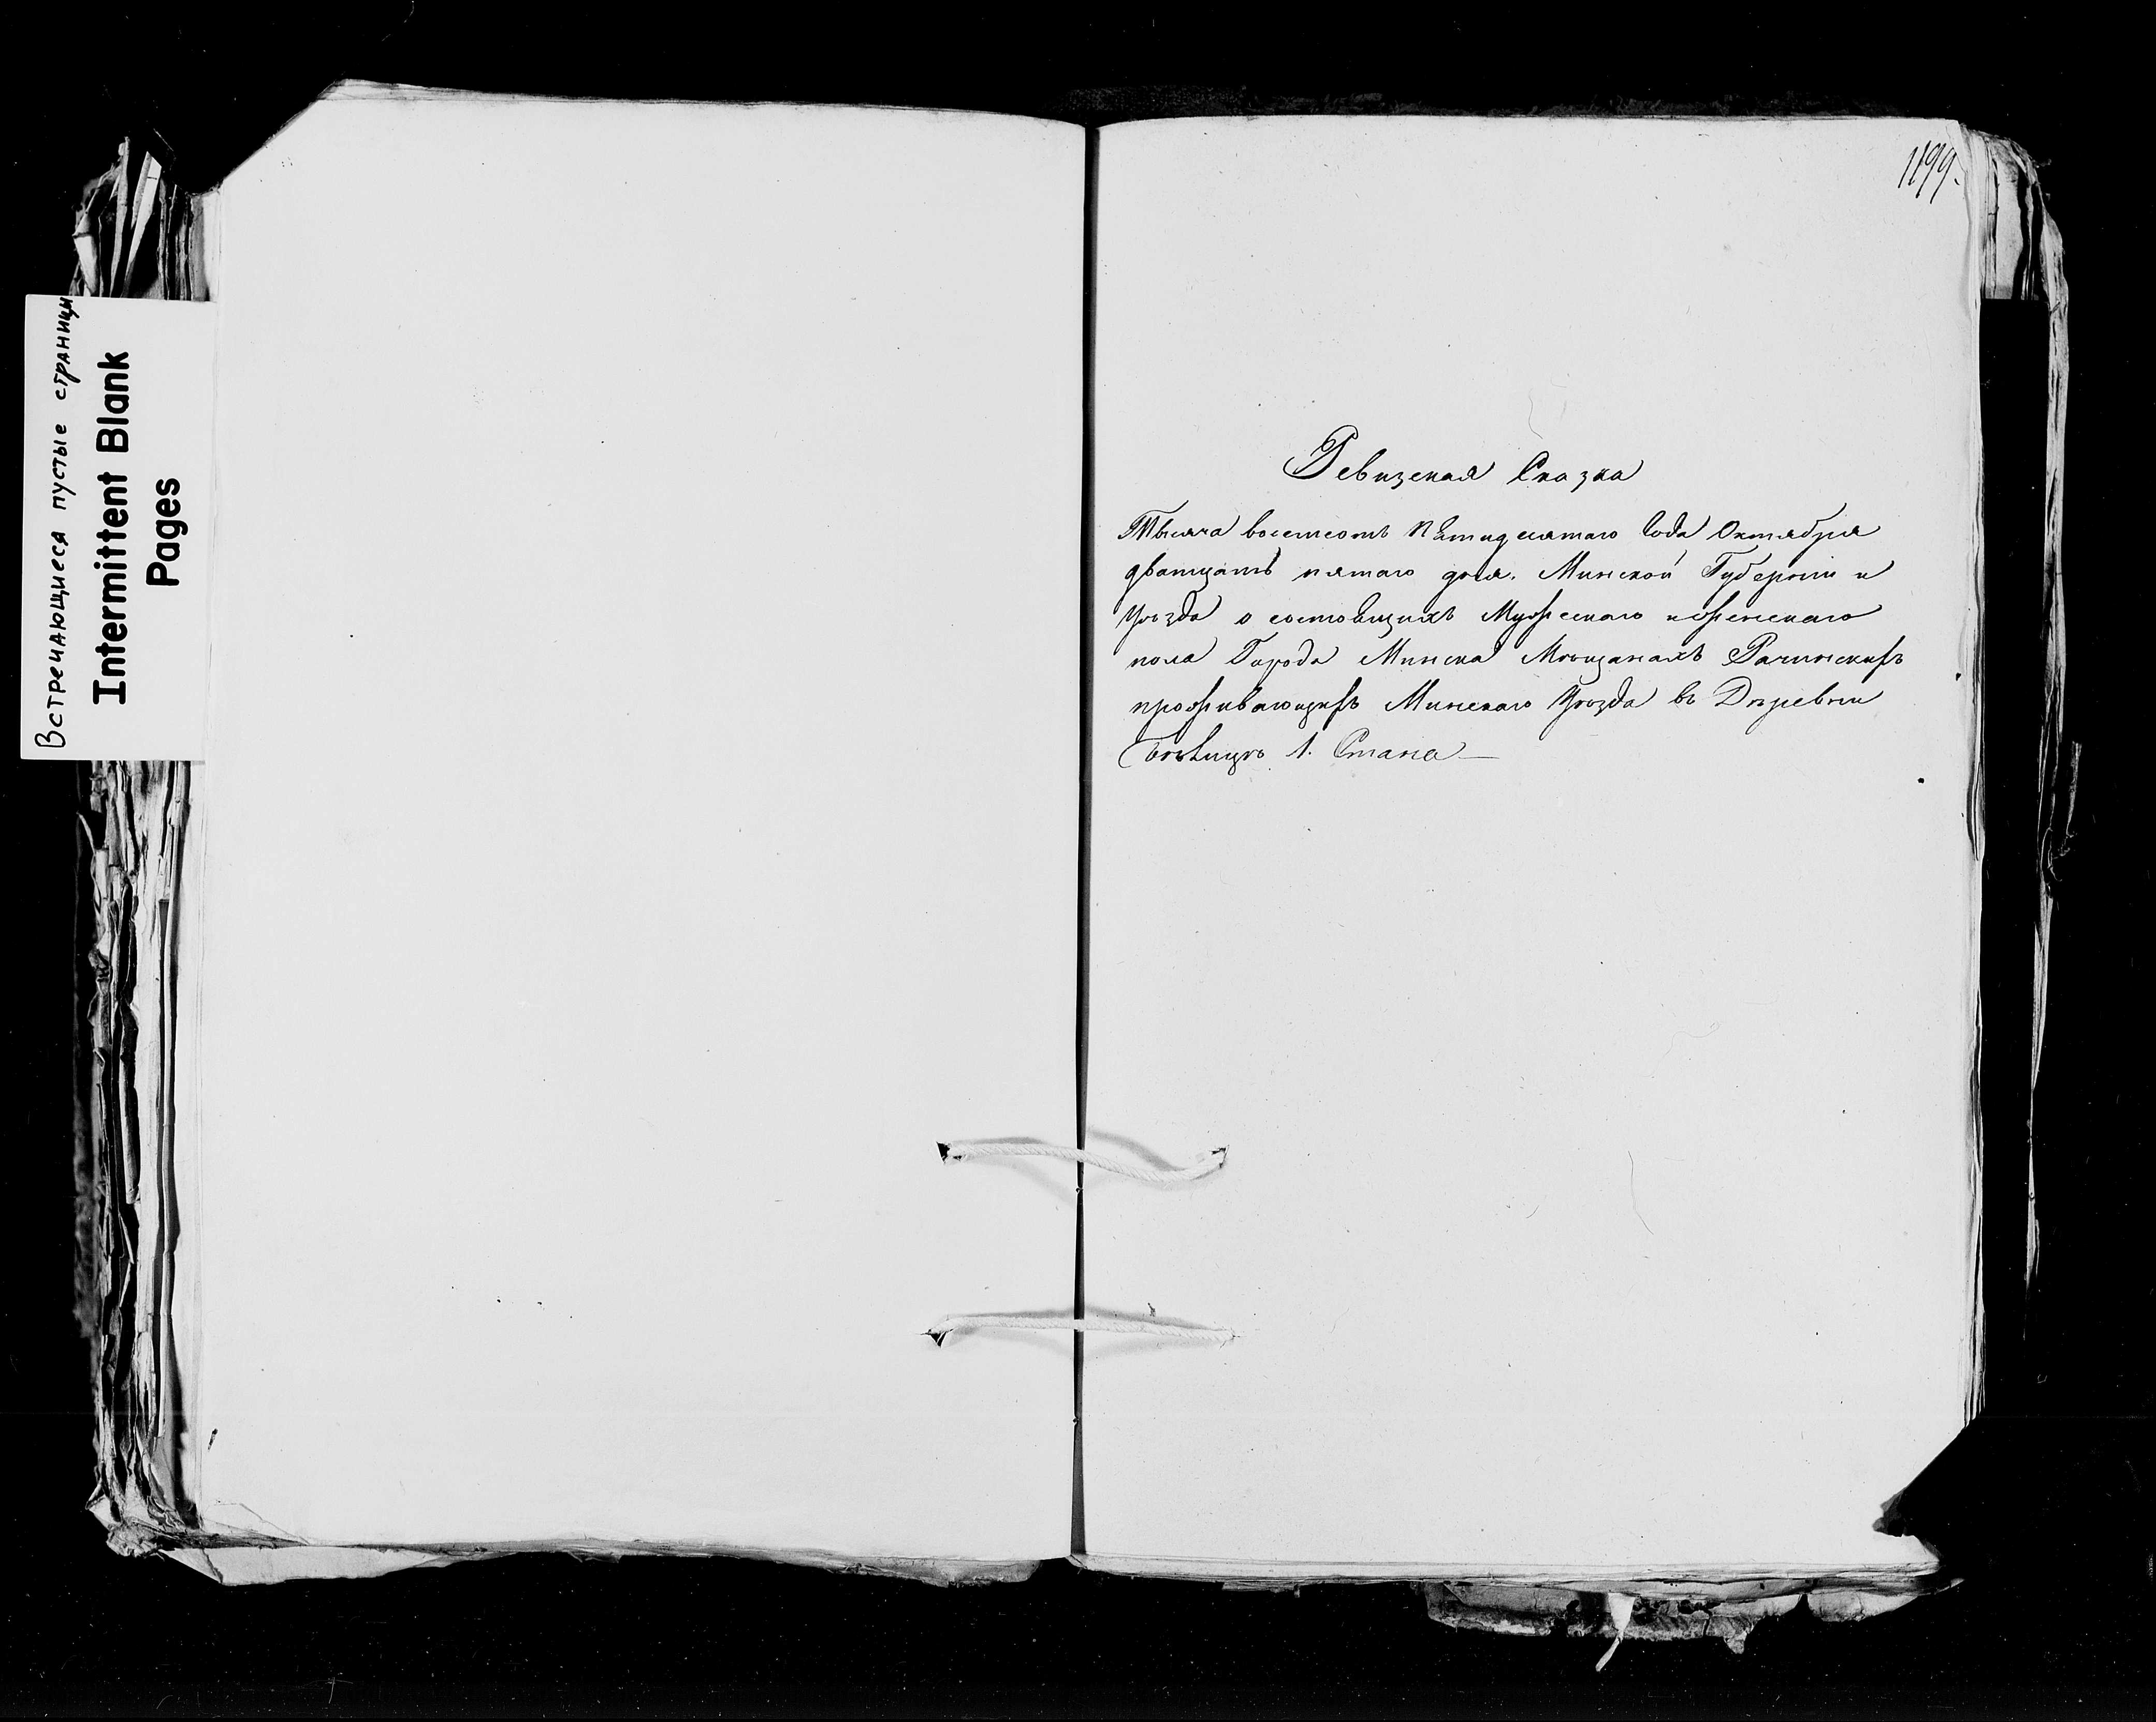 Встречающиеся пустые страницы
Intermittent Blank
Pages
1199.
Ревизская Сказка
Тысяча восемсотъ Пѣтидесятаго Года Октября
дватцать пятаго дня. Минской Губернiи и
уѣзда о состовщихъ Мужескаго и женскаго
пола Города Минска Мѣщанахъ Рачинскихъ
проживающихъ Минскаго Уѣзда въ Дѣревни
1. Стана —